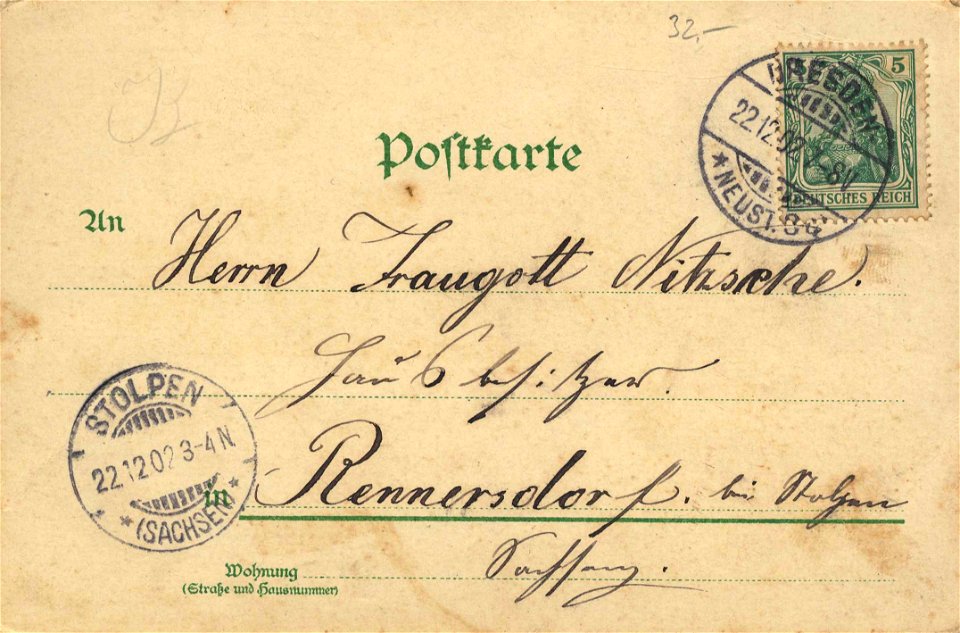 32,-
5
DRESDEN
22.12.02 5-8V
* NEUST. 6 G
DEUTSCHES REICH
Postkarte
An
Herrn Traugott Nitzsche.
Hausbesitzer.
STOLPEN
22.12.02 3-4 N
* (SACHSEN) *
in Rennersdorf. bei Stolpen
Sachsen.
Wohnung
(Straße und Hausnummer)